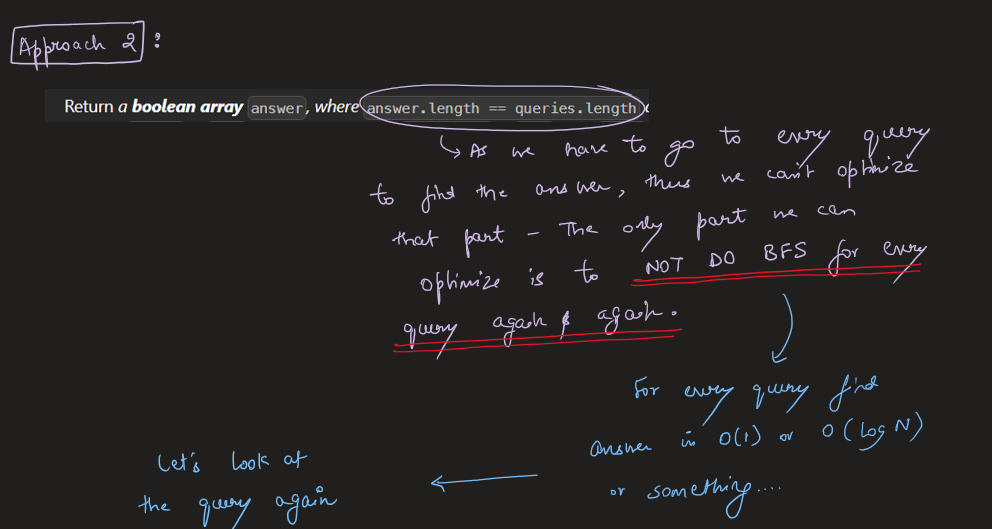 Approach 2 :
Return a boolean array answer, where answer.length == queries.length
↳ As we have to go to every query
to find the answer, thus we can't optimize
that part - The only part we can
optimize is to NOT DO BFS for every
query again & again.
For every query find
answer in O(1) or O(log N)
or something....
Let's look at
the query again